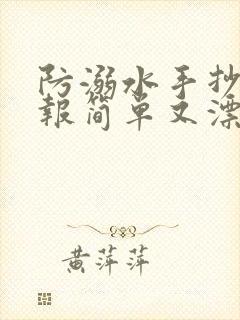 防溺水手抄
報简单又漂
黄萍萍